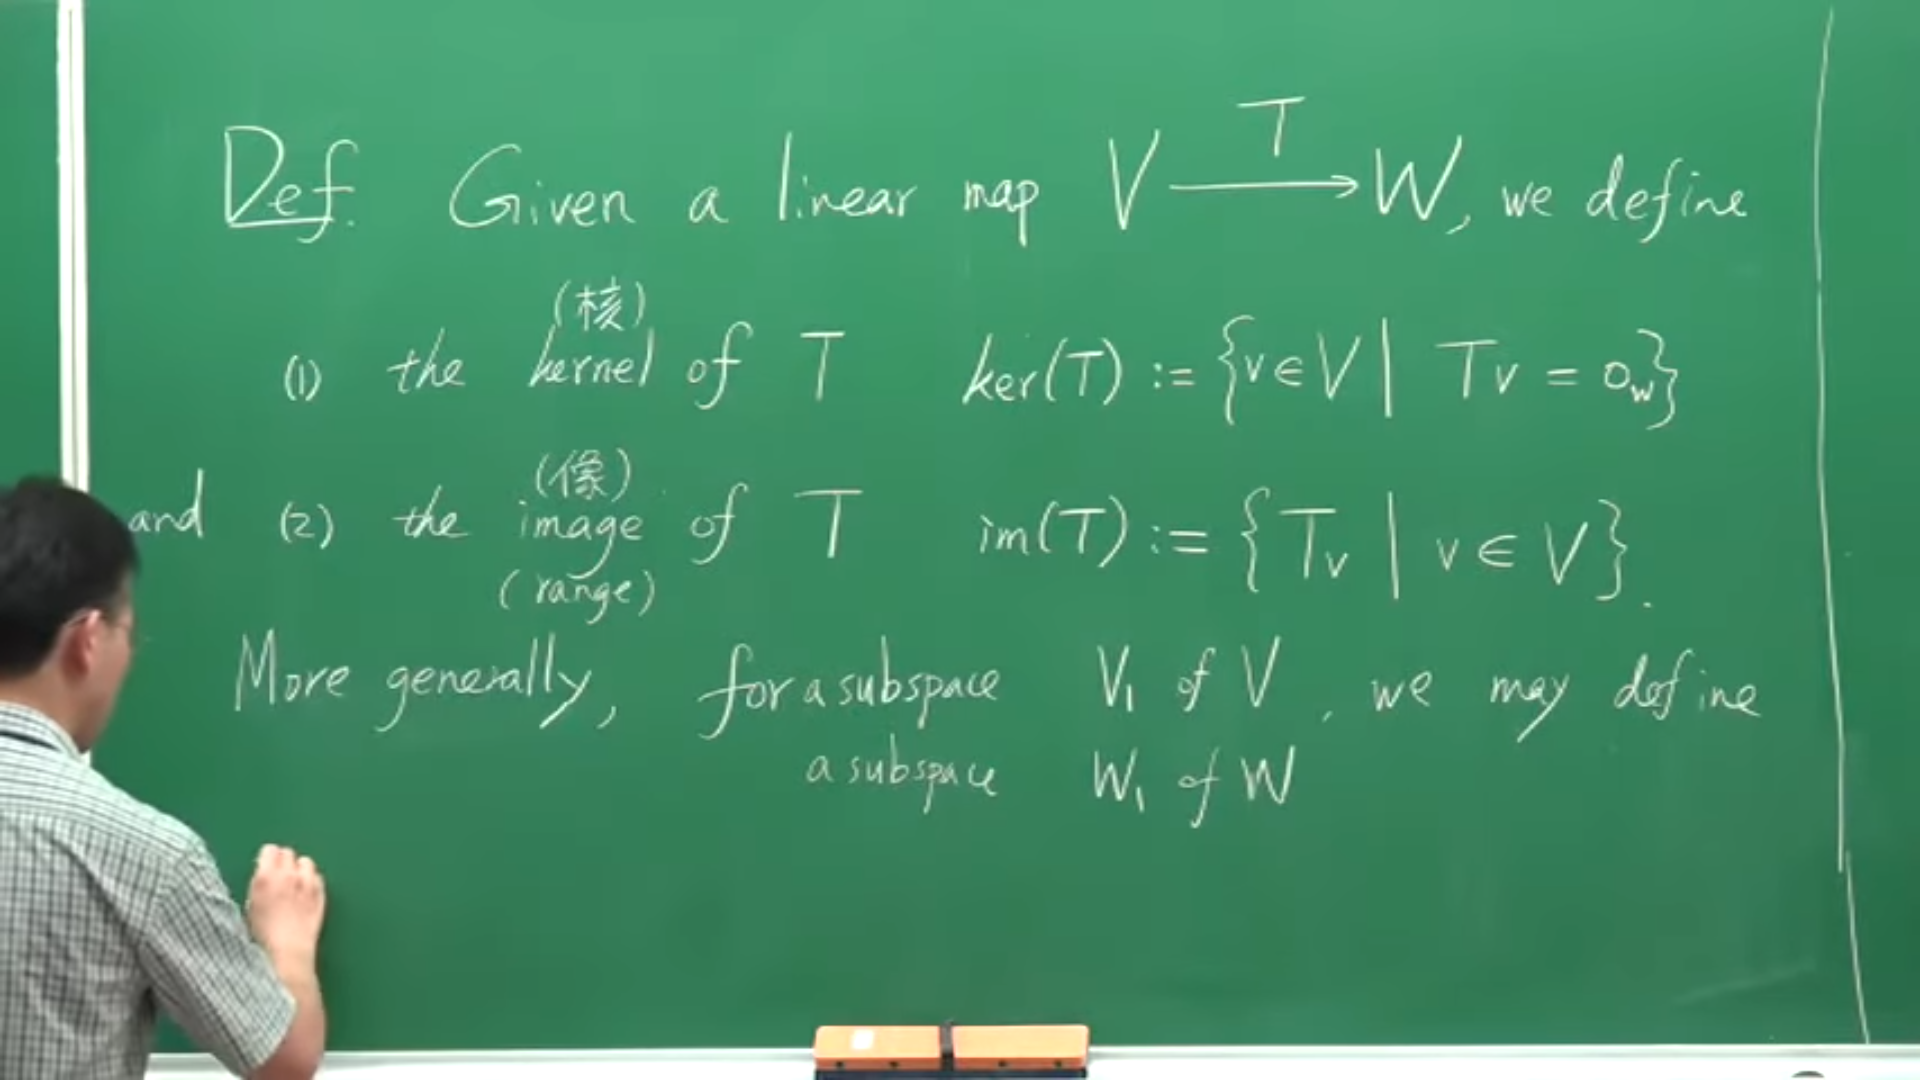 Def. Given a linear map V \xrightarrow{T} W, we define
(核)
(1) the kernel of T ker(T) := {v ∈ V | Tv = 0_W}
(像)
and (2) the image of T im(T) := {Tv | v ∈ V}.
(range)
More generally, for a subspace V₁ of V, we may define
a subspace W₁ of W